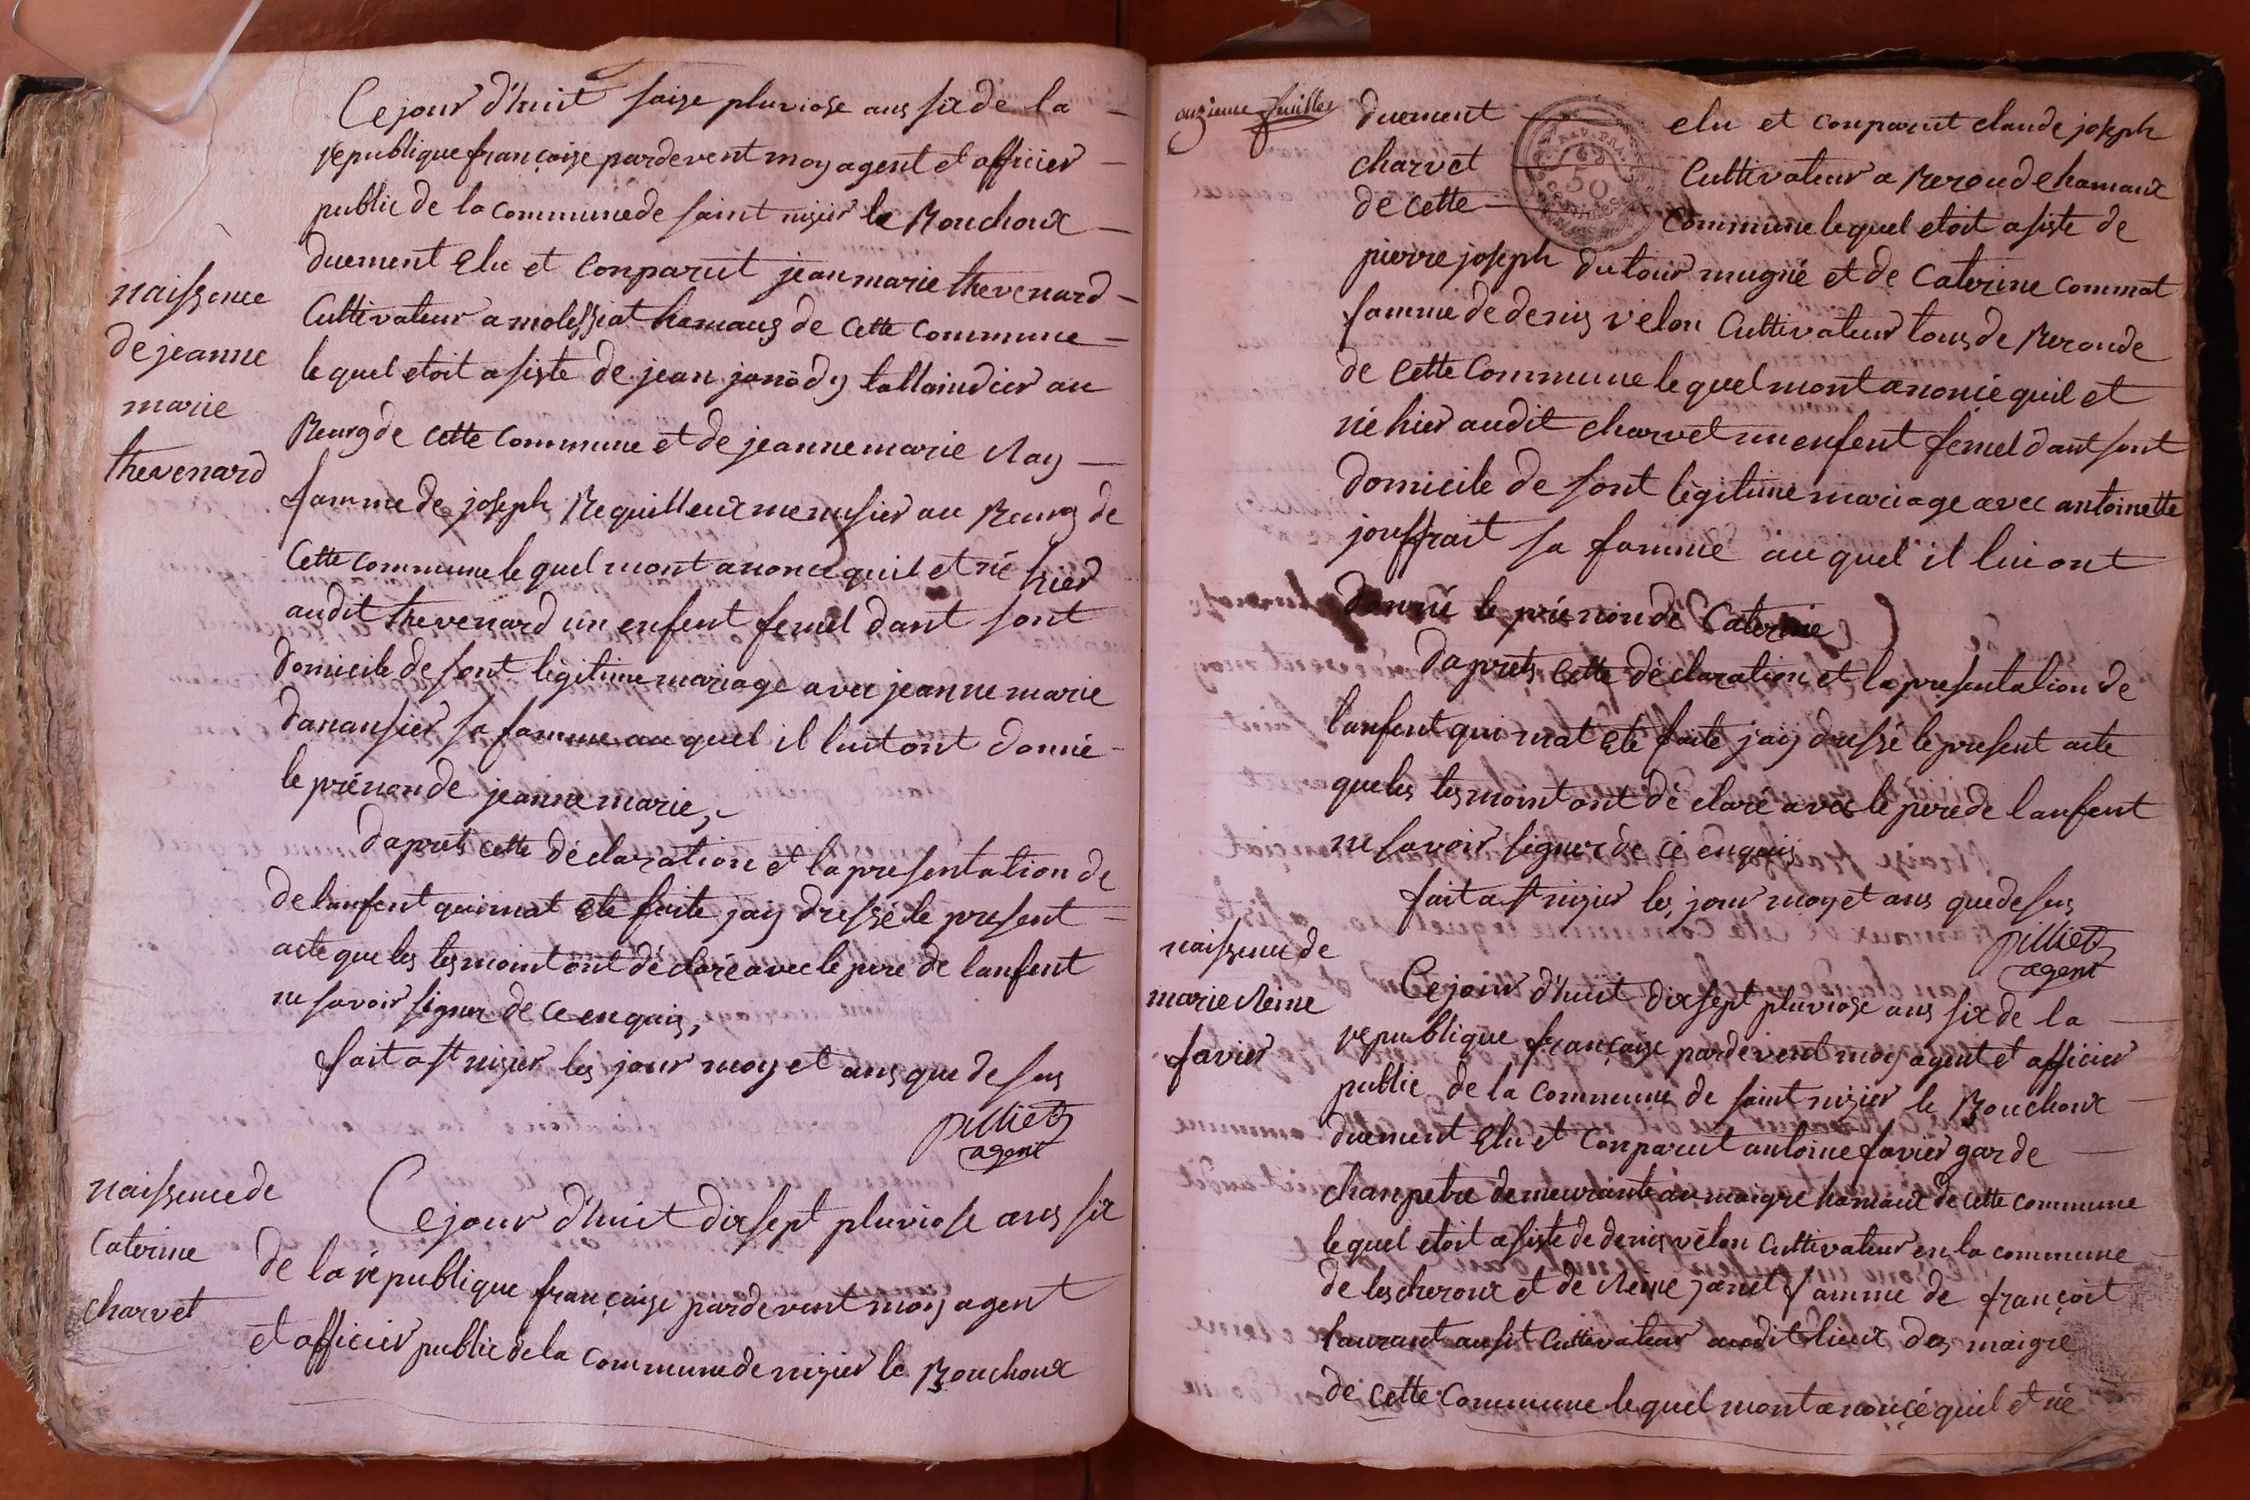 Cejour d'huit saize pluviose ans six de la
republique françaize pardevent moy agent et officier
public de la commune de saint nizier le Bouchoux
duement elu et conparut jean marie thevenard
Cultivateur a molessiat hamaus de cette commune
le quel etoit asiste de jean janody tallaindier au
Bourg de cette commune et de jeanne marie Ray
famme de joseph Requilleux menusier au Bourg de
cette commune le quel mont anonce quil et né hier
audit thevenard un enfent femel dant sont
domicile de sont legitime mariage avec jeanne marie
danansier sa famme au quel il luit ont donné
le prénon de jeanne marie,
naissence
de jeanne
marie
thevenard
daprets cette déclaration et la presentation de
de lanfent qui mat ete faite jay dressé le present
acte que les tesmoint ont déclaré avec le pere de lanfent
ne savoir signer de ce enquis,
fait a st nizier les jour moy et ans que desus
pilliet
agent
naissence de
Caterine
charvet
Cejour d'huit dixsept pluviose ans six
de la république françaize pardevent moy agent
et officier public de la commune de nizier le Bouchoux
onzieme feuillet
duement elu et conparut claude joseph
charvet Cultivateur a Beroude hamaux
de cette commune le quel etoit asiste de
50
pierre joseph dutour mugné et de Caterine commat
famme de denis vélon Cultivateur tous de Beroude
de cette commune le quel mont anoncé quil et
né hier audit charvet un enfent femel dant sont
domicile de sont légitime mariage avec antoinette
jouffrait sa famme au quel il lui ont
danné le prénon de Caterine
daprets cette déclaration et la presentation de
lanfent qui mat ete faite jay dressé le present acte
que les tesmoint ont déclaré avec le pere de lanfent
ne savoir signer de ce enquis
fait a st nizier les jour moy et ans que desus
pilliet
agent
naissence de
marie Reine
favier
Cejour d'huit dixsept pluviose ans six de la
republique françaize pardevent moy agent et officier
public de la commune de saint nizier le Bouchoux
duement elu et conparut antoine favier garde
chanpetre demeurante au maigre hamaux de cette commune
le quel etoit asiste de denis vélon Cultivateur en la commune
de lescheroux et de Reine janet famme de françoit
laurant ausit Cultivateur audit lieux des maigre
de cette commune le quel mont anoncé quil et né